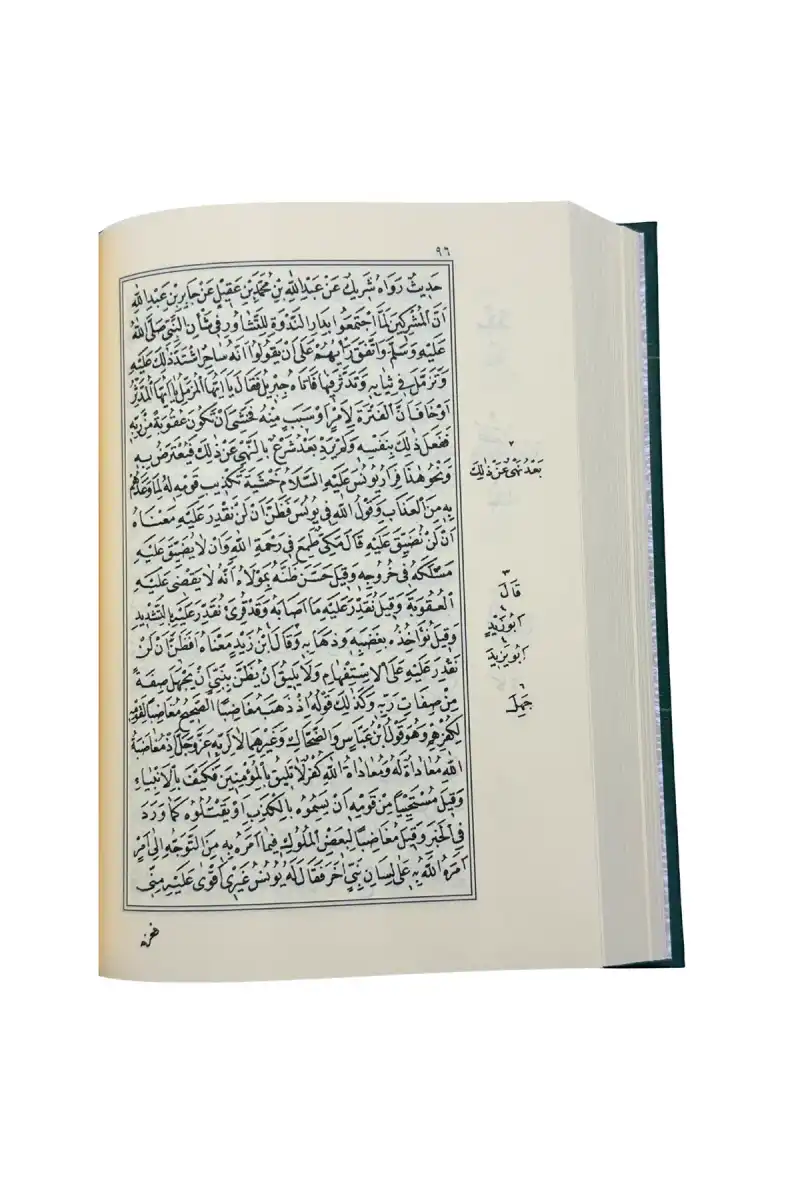 ٩٦
حَدِيثٌ رَوَاهُ شَرِيكٌ عَنْ عَبْدِ اللّٰهِ بْنِ مُحَمَّدِ بْنِ عَقِيلٍ عَنْ جَابِرِ بْنِ عَبْدِ اللّٰهِ
اَنَّ الْمُشْرِكِينَ لَمَّا اجْتَمَعُوا بِدَارِ النَّدْوَةِ لِلتَّشَاوُرِ فِي شَأْنِ النَّبِيِّ صَلَّى اللّٰهُ
عَلَيْهِ وَسَلَّمَ وَاتَّفَقَ رَأْيُهُمْ عَلَى اَنْ يَقُولُوا اِنَّهُ سَاحِرٌ اشْتَدَّ ذٰلِكَ عَلَيْهِ
وَتَزَمَّلَ فِي ثِيَابِهِ وَتَدَثَّرَ فِيهَا فَاَتَاهُ جِبْرِيلُ فَقَالَ يَا اَيُّهَا الْمُزَّمِّلُ يَا اَيُّهَا الْمُدَّثِّرُ
اَوْ خَافَ اَنَّ الْفَتْرَةَ لِاَمْرٍ اَوْ سَبَبٍ مِنْهُ فَخَشِيَ اَنْ تَكُونَ عُقُوبَةً مِنْ رَبِّهِ
فَفَعَلَ ذٰلِكَ بِنَفْسِهِ وَلَمْ يَرِدْ بَعْدُ شَرْعٌ بِالنَّهْيِ عَنْ ذٰلِكَ فَيُعْتَرَضَ بِهِ
وَنَحْوُ هٰذَا فِرَارُ يُونُسَ عَلَيْهِ السَّلَامُ خَشْيَةَ تَكْذِيبِ قَوْمِهِ لَهُ لِمَا وَعَدَهُمْ
بِهِ مِنَ الْعَذَابِ وَقَوْلُ اللّٰهِ فِي يُونُسَ فَظَنَّ اَنْ لَنْ نَقْدِرَ عَلَيْهِ مَعْنَاهُ
اَنْ لَنْ نُضَيِّقَ عَلَيْهِ قَالَ مَكِّيٌّ طَمِعَ فِي رَحْمَةِ اللّٰهِ وَاَنْ لَا يُضَيِّقَ عَلَيْهِ
مَسْلَكَهُ فِي خُرُوجِهِ وَقِيلَ حَسَّنَ ظَنَّهُ بِمَوْلَاهُ اَنَّهُ لَا يَقْضِي عَلَيْهِ
الْعُقُوبَةَ وَقِيلَ نُقَدِّرُ عَلَيْهِ مَا اَصَابَهُ وَقَدْ قُرِئَ نُقَدِّرَ عَلَيْهِ بِالتَّشْدِيدِ
وَقِيلَ نُؤَاخِذُهُ بِغَضَبِهِ وَذَهَابِهِ وَقَالَ ابْنُ زَيْدٍ مَعْنَاهُ اَفَظَنَّ اَنْ لَنْ
نَقْدِرَ عَلَيْهِ عَلَى الْاِسْتِفْهَامِ وَلَا يَلِيقُ اَنْ يُظَنَّ بِنَبِيٍّ اَنْ يَجْهَلَ صِفَةً
مِنْ صِفَاتِ رَبِّهِ وَكَذٰلِكَ قَوْلُهُ اِذْ ذَهَبَ مُغَاضِبًا الصَّحِيحُ مُغَاضِبًا لِقَوْمِهِ
لِكُفْرِهِمْ وَهُوَ قَوْلُ ابْنِ عَبَّاسٍ وَالضَّحَّاكِ وَغَيْرِهِمَا لَا لِرَبِّهِ عَزَّ وَجَلَّ اِذْ مُغَاضَبَةُ
اللّٰهِ مُعَادَاةٌ لَهُ وَمُعَادَاةُ اللّٰهِ كُفْرٌ لَا تَلِيقُ بِالْمُؤْمِنِينَ فَكَيْفَ بِالْاَنْبِيَاءِ
وَقِيلَ مُسْتَحْيِيًا مِنْ قَوْمِهِ اَنْ يَسِمُوهُ بِالْكَذِبِ اَوْ يَقْتُلُوهُ كَمَا وَرَدَ
فِي الْخَبَرِ وَقِيلَ مُغَاضِبًا لِبَعْضِ الْمُلُوكِ فِيمَا اَمَرَهُ بِهِ مِنَ التَّوَجُّهِ اِلَى اَمْرٍ
اَمَرَهُ اللّٰهُ بِهِ عَلَى لِسَانِ نَبِيٍّ اٰخَرَ فَقَالَ لَهُ يُونُسُ غَيْرِي اَقْوَى عَلَيْهِ مِنِّي
٢
بَعْدُ نَهْيٌ عَنْ ذٰلِكَ
٣
قَالَ
اَبُو زَيْدٍ
اَبُو يَزِيدَ
٦
جَهِلَ